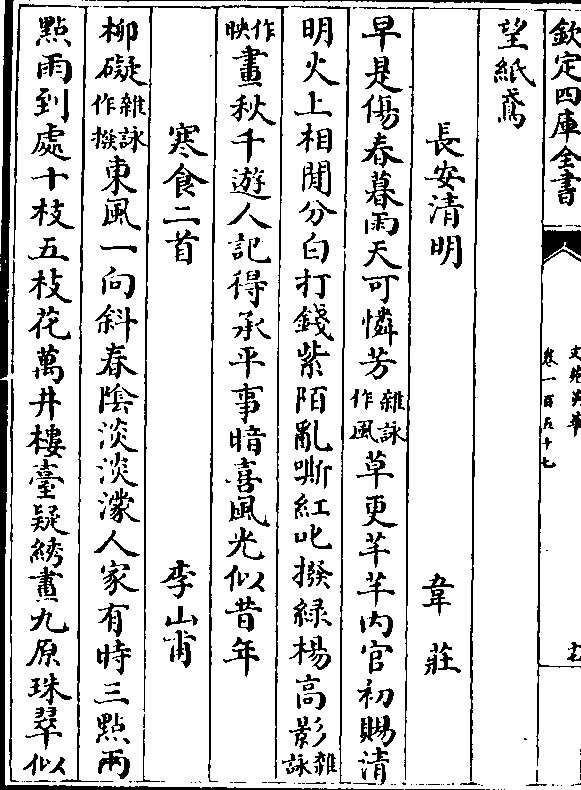 欽定四庫全書
文苑英華
卷一百五十七
望紙鳶
長安清明 韋莊
早是傷春暮雨天可憐芳雜詠作風草更芊芊内官初賜清
明火上相閒分白打錢紫陌亂嘶紅叱撥緑楊高影雜詠
作映畫秋千遊人記得承平事暗喜風光似昔年
寒食二首 李山甫
栁礙雜詠作撥東風一向斜春陰淡淡濛人家有時三點兩
點雨到處十枝五枝花萬井樓臺疑綉畫九原珠翠似